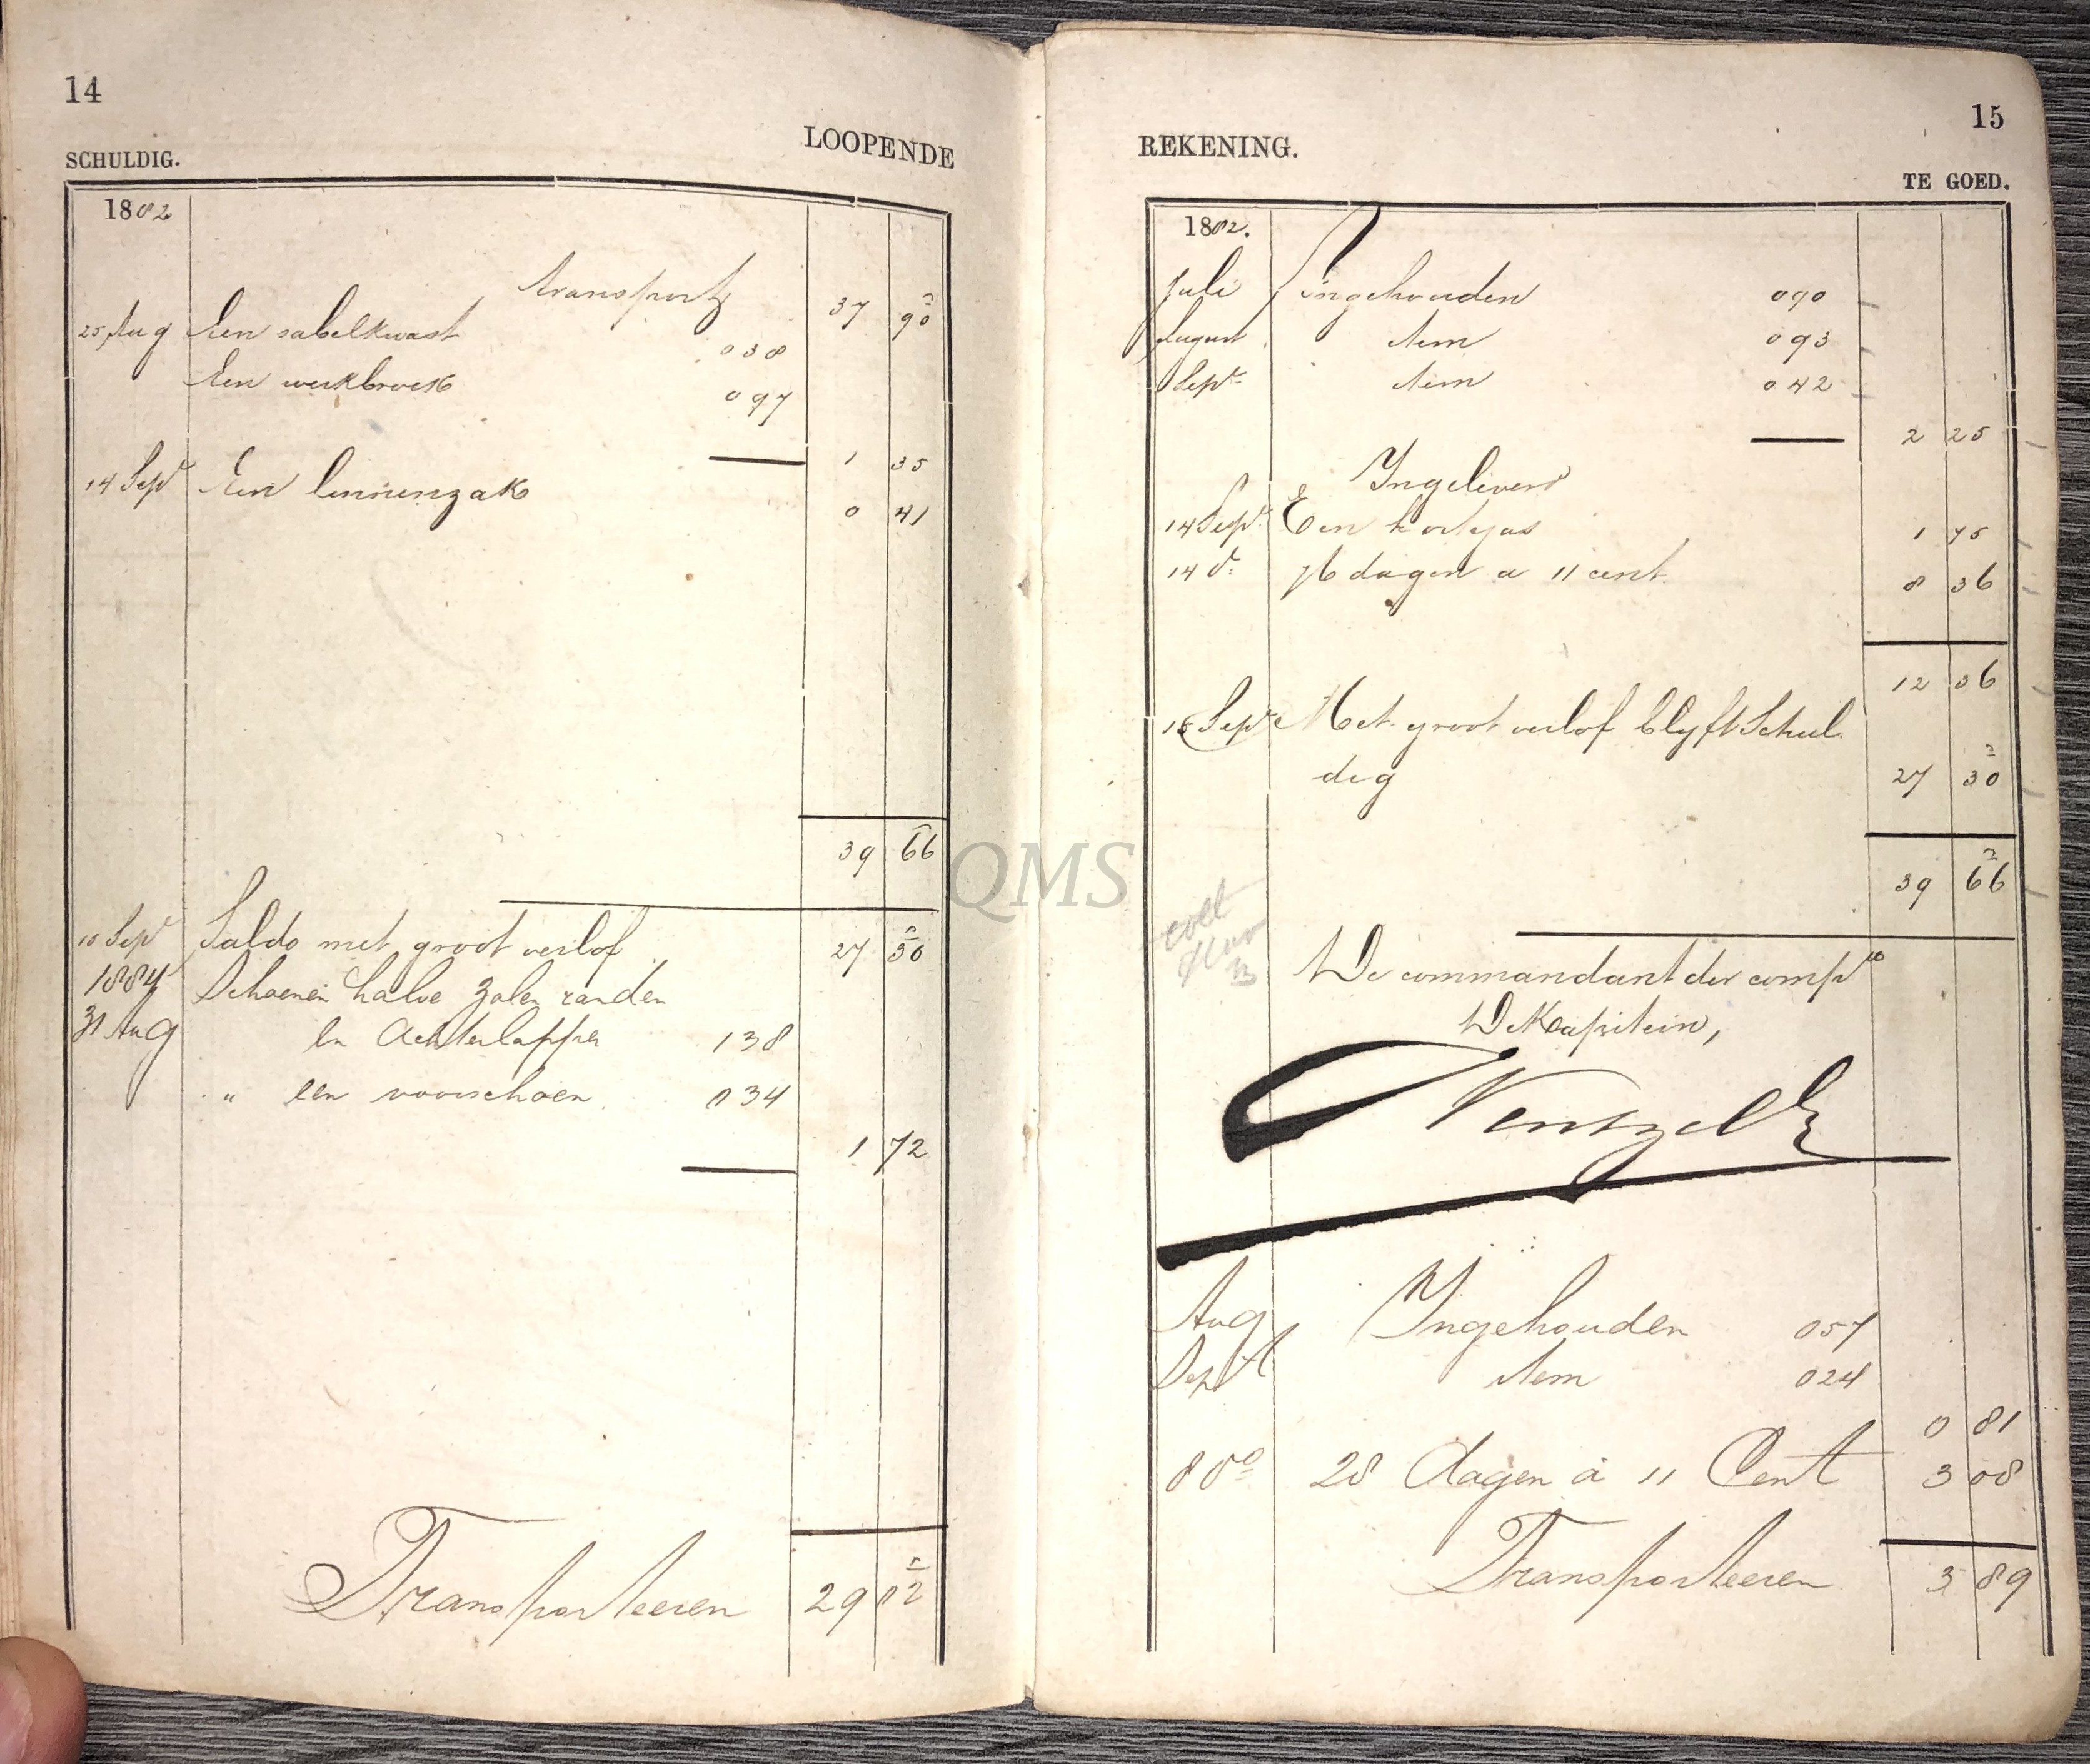 14
LOOPENDE
SCHULDIG.
1882
transport 37 90
25 Aug Een sabelkwast 0 38
Een werkbroek 0 97
1 35
14 Sept Een linnenzak 0 41
39 66
15 Sept Saldo met groot verlof 27 30
1884 Schoenen halve zolen randen
31 Aug en Achterlappen 1 38
" een voorschoen 0 34
1 72
Transporteeren 29 02
15
REKENING.
TE GOED.
1882.
Juli ingehouden 0 90
August item 0 93
Sept item 0 42
2 25
Ingeleverd
14 Sept Een 1 75
14 do 76 dagen a 11 cent 8 36
12 36
15 Sept Met groot verlof blyft Schul
dig 27 30
39 66
De commandant der compie
De Kapitein,
Wentzel
Aug Ingehouden 0 57
Sept item 0 24
0 81
8 do 28 dagen à 11 Cent 3 08
Transporteeren 3 89
QMS